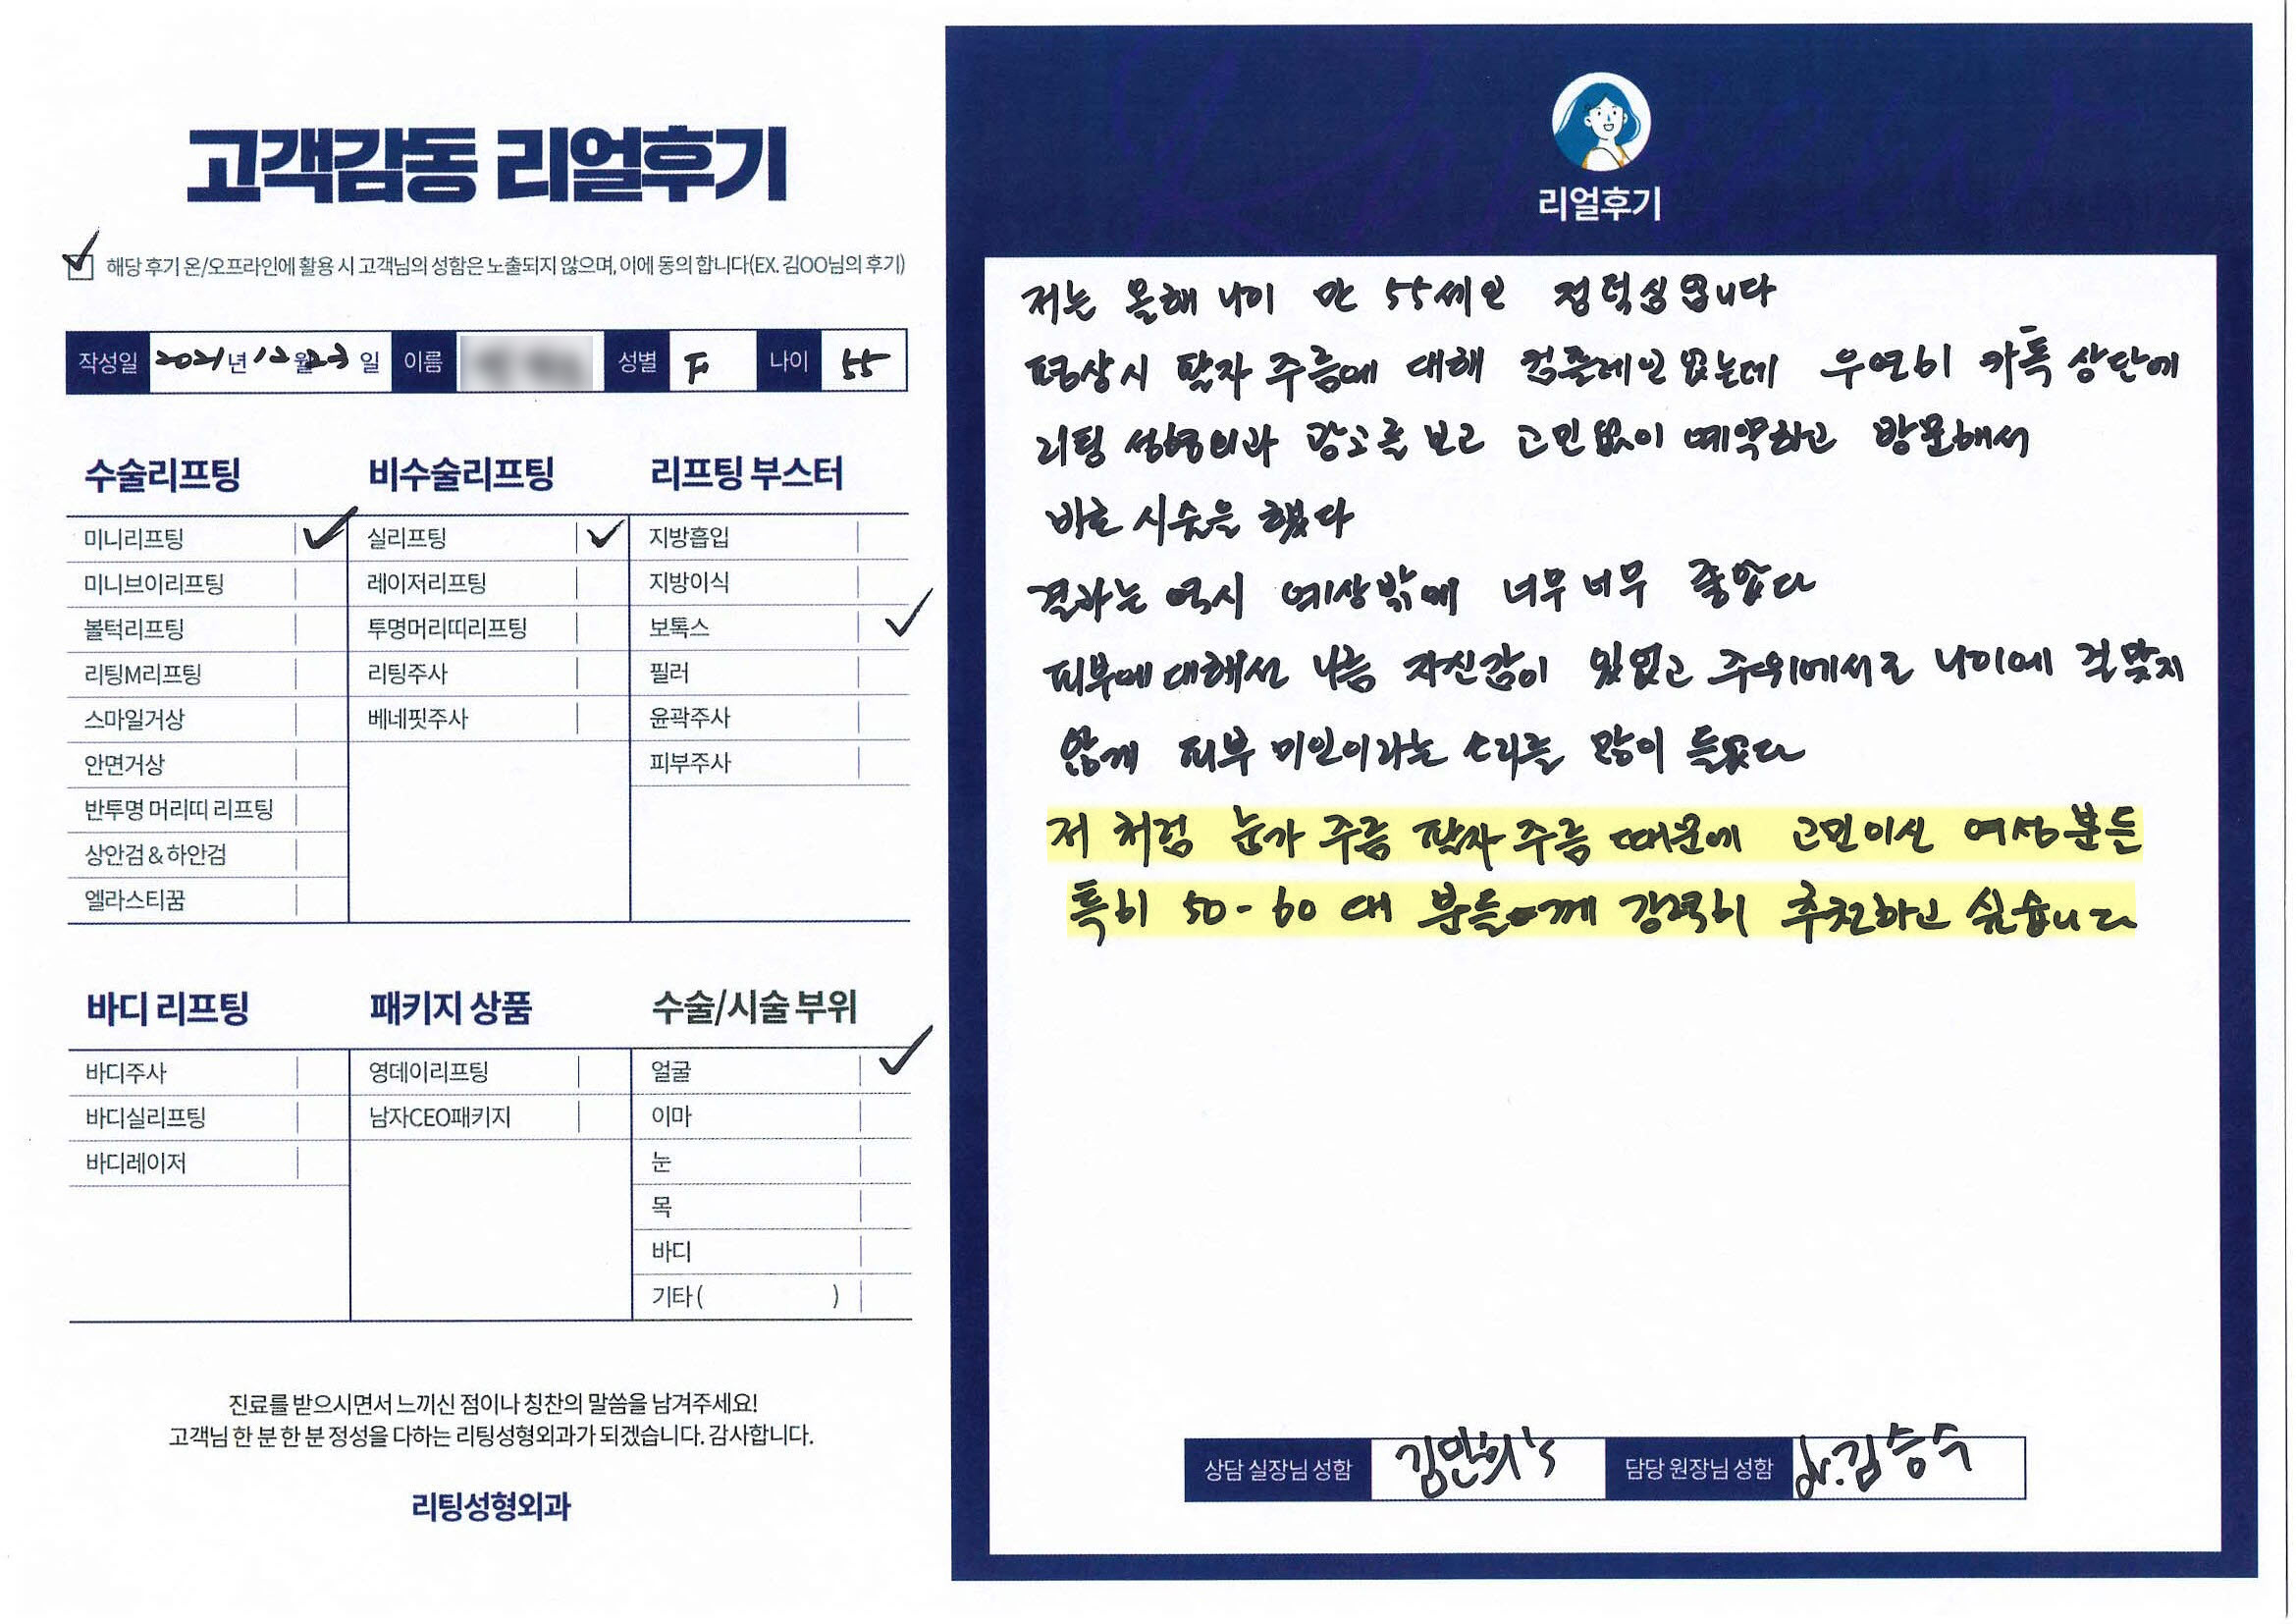 고객감동 리얼후기
해당 후기 온/오프라인에 활용 시 고객님의 성함은 노출되지 않으며, 이에 동의 합니다(EX. 김OO님의 후기)
작성일 2021년 12월 23일 이름 성별 F 나이 55
수술리프팅
미니리프팅
미니브이리프팅
볼턱리프팅
리팅M리프팅
스마일거상
안면거상
반투명 머리띠 리프팅
상안검&하안검
엘라스티꿈
비수술리프팅
실리프팅
레이저리프팅
투명머리띠리프팅
리팅주사
베네핏주사
리프팅 부스터
지방흡입
지방이식
보톡스
필러
윤곽주사
피부주사
바디 리프팅
바디주사
바디실리프팅
바디레이저
패키지 상품
영데이리프팅
남자CEO패키지
수술/시술 부위
얼굴
이마
눈
목
바디
기타( )
진료를 받으시면서 느끼신 점이나 칭찬의 말씀을 남겨주세요!
고객님 한 분 한 분 정성을 다하는 리팅성형외과가 되겠습니다. 감사합니다.
리팅성형외과
리얼후기
저는 올해 나이 만 55세인
평상시 팔자 주름에 대해 컴플레인 있는데 우연히 카톡 상단에
리팅 성형외과 광고를 보고 고민없이 예약하고 방문해서
바로 시술을 했다
결과는 역시 예상밖에 너무너무 좋았다
피부에 대해선 나름 자신감이 있었고 주위에서도 나이에 걸맞지
않게 피부 미인이라는 소리를 많이 들었다
저 처럼 눈가 주름 팔자 주름 때문에 고민이신 여성분들
특히 50-60대 분들께 강력히 추천하고 싶습니다
상담 실장님 성함 김민희's 담당 원장님 성함 dr.김승수